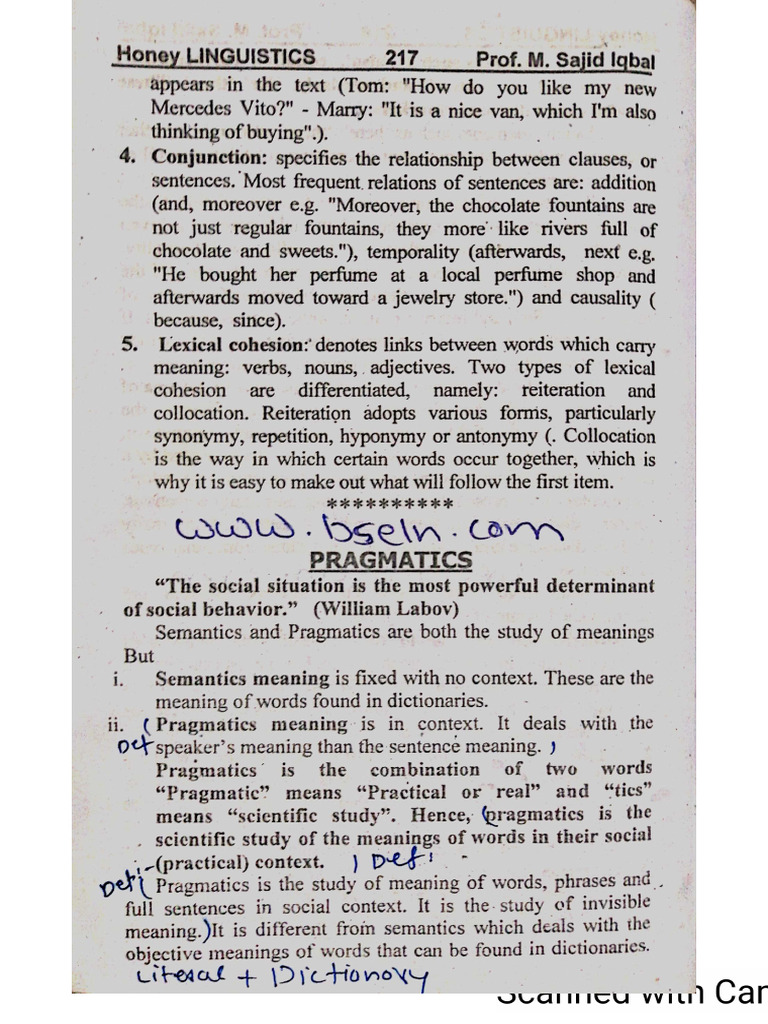 Honey LINGUISTICS 217 Prof. M. Sajid Iqbal
appears in the text (Tom: "How do you like my new
Mercedes Vito?" - Marry: "It is a nice van, which I'm also
thinking of buying".).
4. Conjunction: specifies the relationship between clauses, or
sentences. Most frequent relations of sentences are: addition
(and, moreover e.g. "Moreover, the chocolate fountains are
not just regular fountains, they more like rivers full of
chocolate and sweets."), temporality (afterwards, next e.g.
"He bought her perfume at a local perfume shop and
afterwards moved toward a jewelry store.") and causality (
because, since).
5. Lexical cohesion: denotes links between words which carry
meaning: verbs, nouns, adjectives. Two types of lexical
cohesion are differentiated, namely: reiteration and
collocation. Reiteration adopts various forms, particularly
synonymy, repetition, hyponymy or antonymy (. Collocation
is the way in which certain words occur together, which is
why it is easy to make out what will follow the first item.
**********
www.bseln.com
PRAGMATICS
"The social situation is the most powerful determinant
of social behavior." (William Labov)
Semantics and Pragmatics are both the study of meanings
But
i. Semantics meaning is fixed with no context. These are the
meaning of words found in dictionaries.
ii. (Pragmatics meaning is in context. It deals with the
Def speaker's meaning than the sentence meaning. )
Pragmatics is the combination of two words
"Pragmatic" means "Practical or real" and "tics"
means "scientific study". Hence, (pragmatics is the
scientific study of the meanings of words in their social
(practical) context. ) Def:
Def( Pragmatics is the study of meaning of words, phrases and
full sentences in social context. It is the study of invisible
meaning.)It is different from semantics which deals with the
objective meanings of words that can be found in dictionaries.
Literal + Dictionary
Scanned with Cam